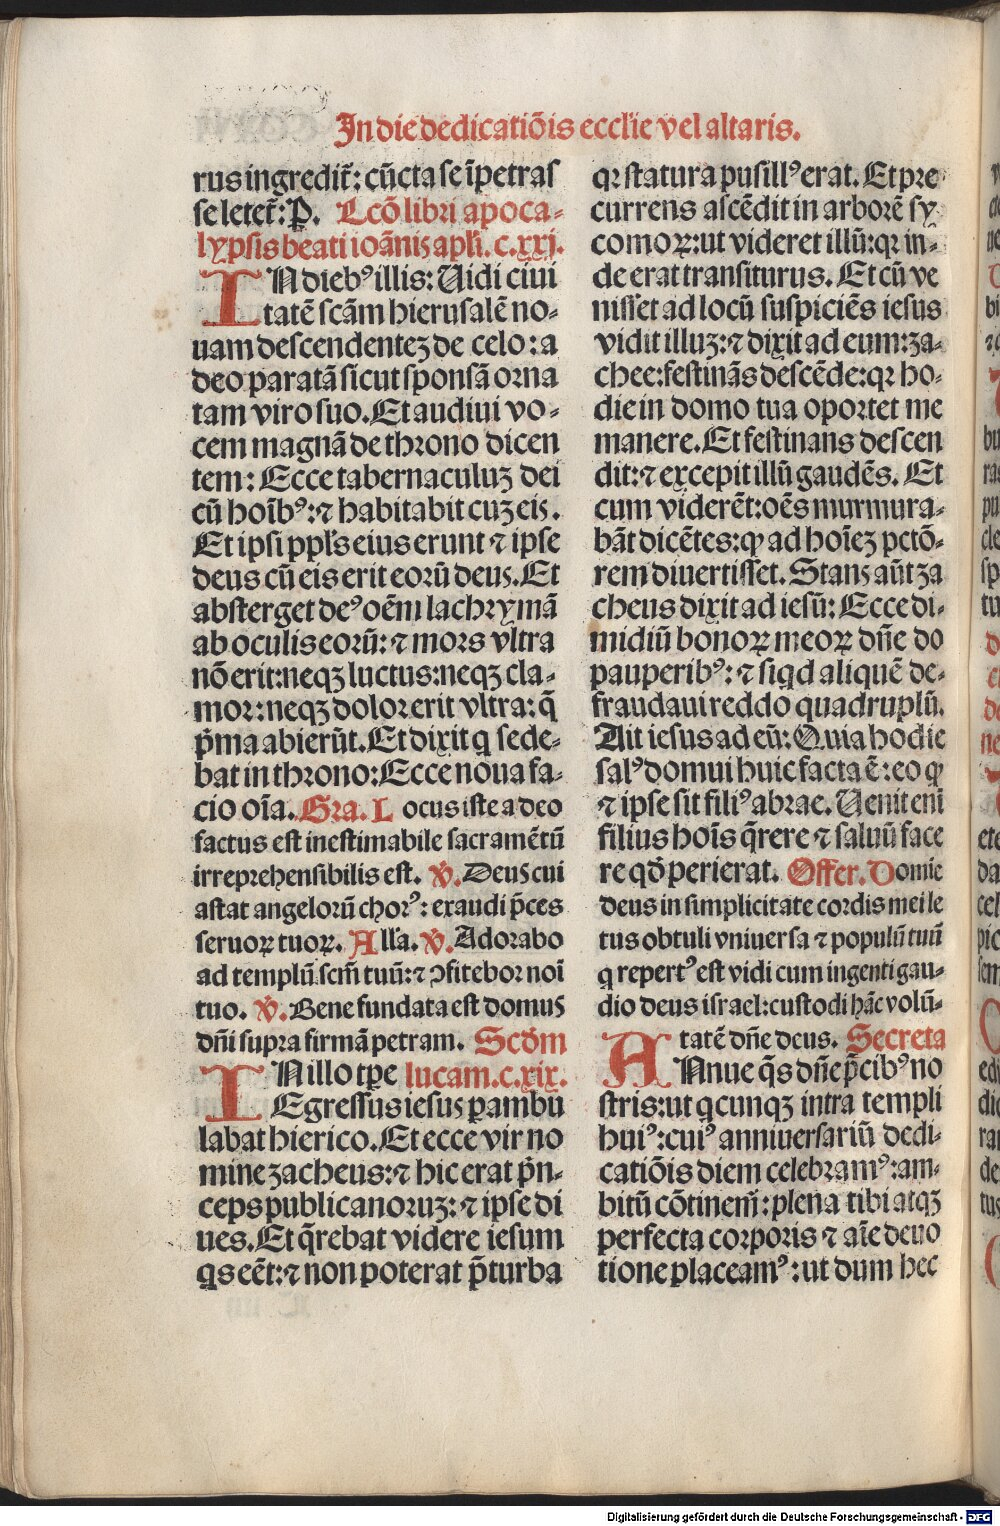 In die dedicatiōis ecclīe vel altaris.
rus ingredit᷑: cūcta se īpetras
se letet᷑: P. Lcō libri apoca-
lypsis beati ioānis apłi. c. xxj.
IN dieb⁹ illis: Uidi ciui
tatē scām hierusalē no-
uam descendentez de celo: a
deo paratā sicut sponsā orna
tam viro suo. Et audiui vo-
cem magnā de throno dicen
tem: Ecce tabernaculuz dei
cū hoīb⁹: ⁊ habitabit cuz eis.
Et ipsi ppl's eius erunt ⁊ ipse
deus cū eis erit eorū deus. Et
absterget de⁹ oēm lachrymā
ab oculis eorū: ⁊ mors vltra
nō erit: neqꝫ luctus: neqꝫ cla-
mor: neqꝫ dolor erit vltra: q̄
p̄ma abierūt. Et dixit q sede-
bat in throno: Ecce noua fa-
cio oīa. Gra. Locus iste a deo
factus est inestimabile sacramētū
irreprehensibilis est. ꝟ. Deus cui
astat angelorū chor⁹: exaudi p̄ces
seruoꝝ tuoꝝ. Alľa. ꝟ. Adorabo
ad templū scm̄ tuū: ⁊ ꝯfitebor noī
tuo. ꝟ. Bene fundata est domus
dn̄i supra firmā petram. Scd̄m
IN illo tꝑe lucam. c. xix.
Egressus iesus ꝑambu
labat hierico. Et ecce vir no
mine zacheus: ⁊ hic erat p̄n-
ceps publicanoruz: ⁊ ipse di
ues. Et q̄rebat videre iesum
qs eēt: ⁊ non poterat p̄ turba
qꝛ statura pusill⁹ erat. Et pre
currens ascēdit in arborē sy
comoꝝ: ut videret illū: qꝛ in-
de erat transiturus. Et cū ve
nisset ad locū suspiciēs iesus
vidit illuz: ⁊ dixit ad eum: za-
chee: festinās descēde: qꝛ ho-
die in domo tua oportet me
manere. Et festinans descen
dit: ⁊ excepit illū gaudēs. Et
cum viderēt: oēs murmura-
bāt dicētes: ꝙ ad hoīez pctō-
rem diuertisset. Stans aūt za
cheus dixit ad iesū: Ecce di-
midiū bonoꝝ meoꝝ dn̄e do
pauperib⁹: ⁊ siqd aliquē de-
fraudaui reddo quadruplū.
Ait iesus ad eū: Quia hodie
sal⁹ domui huic facta ē: eo ꝙ
⁊ ipse sit fili⁹ abrae. Uenit enī
filius hoīs q̄rere ⁊ saluū face
re qd̄ perierat. Offer. Domie
deus in simplicitate cordis mei le
tus obtuli vniuersa ⁊ populū tuū
q repert⁹ est vidi cum ingenti gau-
dio deus israel: custodi hāc volū-
tatē dn̄e deus. Secreta
ANnue q̄s dn̄e p̄cib⁹ no
stris: ut qcunqꝫ intra templi
hui⁹: cui⁹ anniuersariū dedi-
catiōis diem celebram⁹: am-
bitū cōtinem̄: plena tibi atqꝫ
perfecta corporis ⁊ aīe deuo
tione placeam⁹: ut dum hec
Digitalisierung gefördert durch die Deutsche Forschungsgemeinschaft - DFG